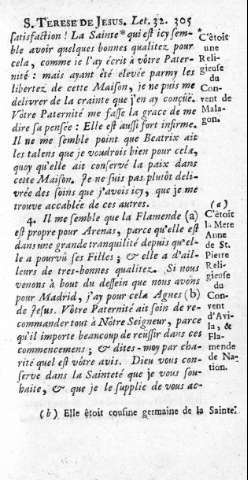 S. TERESE DE JESUS. Let. 32. 305
satisfaction! La Sainte* qui est icy sem-
ble avoir quelques bonnes qualitez pour
cela, comme ie l'ay écrit à vôtre Pater-
nité : mais ayant été elevée parmy les
libertez de cette Maison, je ne puis me
delivrer de la crainte que j'en ay conçüe.
Vôtre Paternité me fasse la grace de me
dire sa pensée : Elle est aussi fort infirme.
Il ne me semble point que Beatrix ait
les talens que je voudrois bien pour cela,
quoy qu'elle ait conservé la paix dans
cette Maison. Je ne suis pas plutôt deli-
vrée des soins que j'avois icy, que je me
trouve accablée de ces autres.
4. Il me semble que la Flamende (a)
est propre pour Arenas, parce qu'elle est
dans une grande tranquilité depuis qu'el-
le a pourvû ses Filles ; & elle a d'ail-
leurs de tres-bonnes qualitez. Si nous
venons à bout du dessein que nous avons
pour Madrid, j'ay pour cela Agnes (b)
de Jesus. Vôtre Paternité ait soin de re-
commander tout à Nôtre Seigneur, parce
qu'il importe beaucoup de reussir dans ces
commencemens ; & dites-moy par cha-
rité quel est vôtre avis. Dieu vous con-
serve dans la Sainteté que je vous sou-
haite, & que je le supplie de vous ac-
* C'étoit
une
Reli-
gieuse
du
Con-
vent de
Mala-
gon.
(a)
C'étoit
la Mere
Anne
de St.
Pierre
Reli-
gieuse
du
Con-
vent
d'Avi-
la, &
Fla-
mende
de Na-
tion.
(b) Elle êtoit cousine germaine de la Sainte.